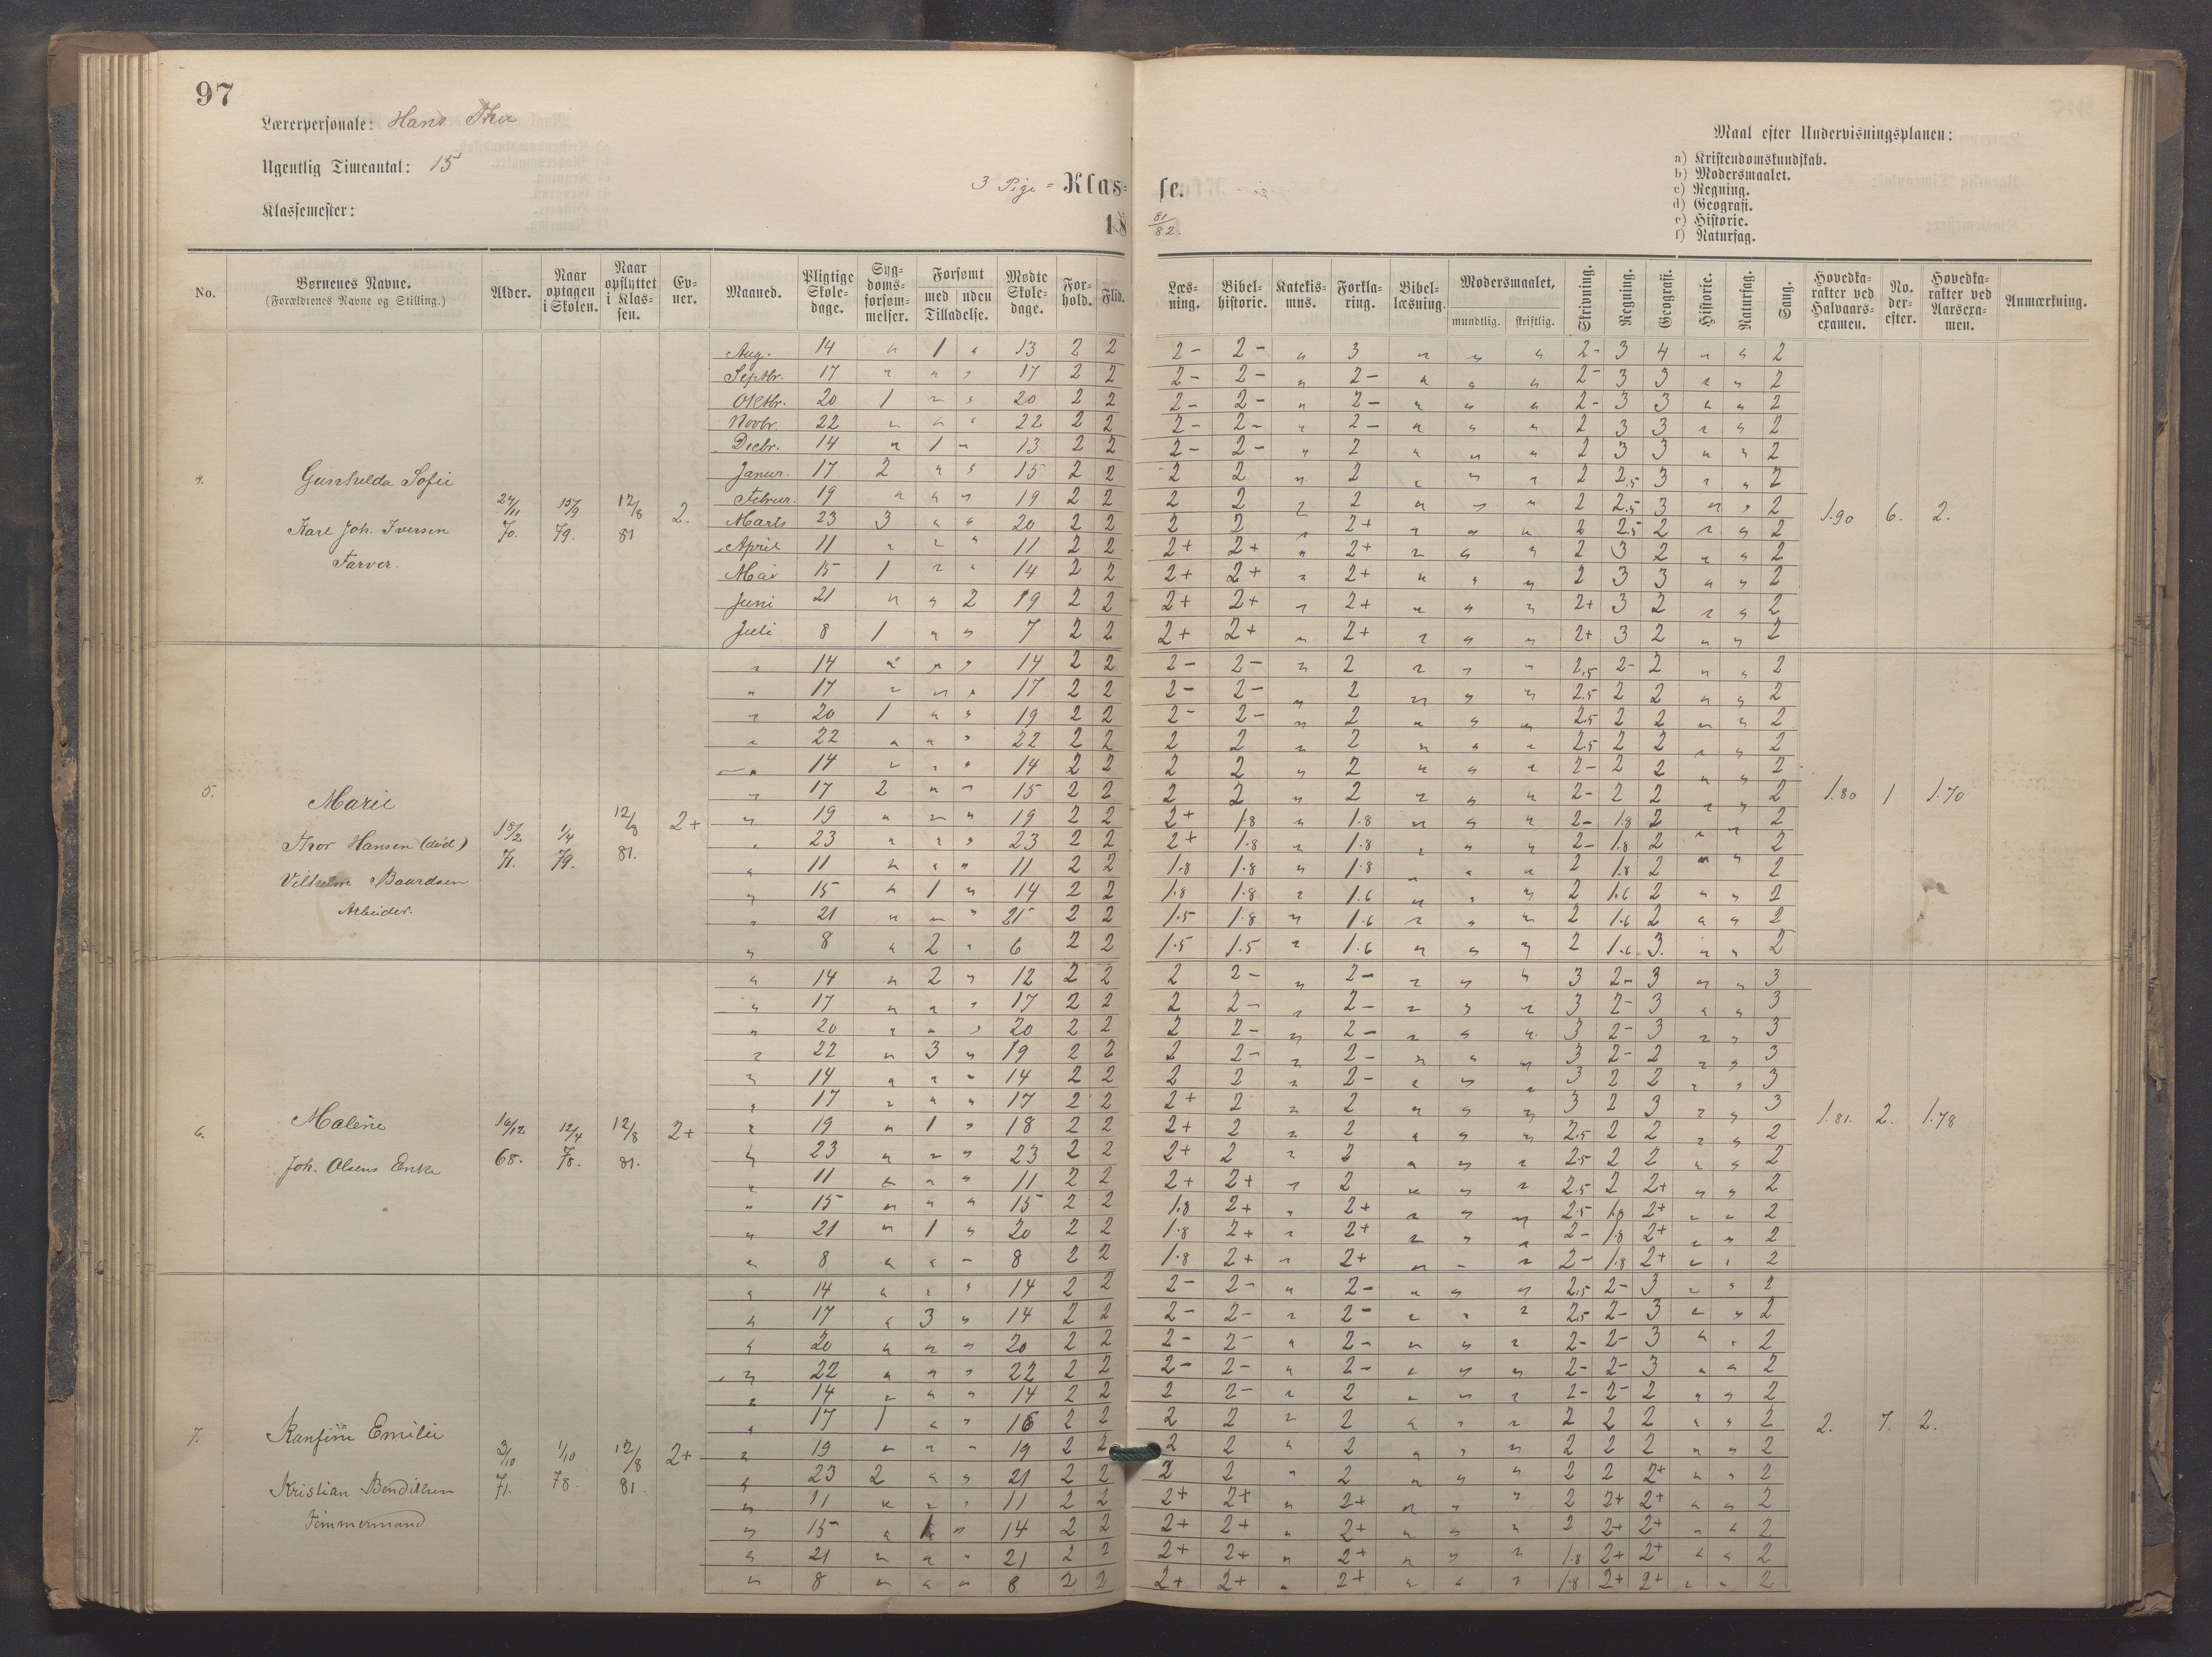 97
Lærerpersonale: Hans
Ugentlig Timeantal: 15
Klassemester:
3 Pige= Klas= se.
18 81/82.
Maal efter Undervisningsplanen:
a) Kristendomskundskab.
b) Modersmaalet.
c) Regning.
d) Geografi.
e) Historie.
f) Naturfag.
No. Børnenes Navne. (Forældrenes Navne og Stilling.) Alder. Naar optagen i Skolen. Naar opflyttet i Klassen. Evner. Maaned. Pligtige Skoledage. Sygdomsforsømmelser. Forsømt med uden Tilladelse. Mødte Skoledage. Forhold. Flid. Læsning. Bibelhistorie. Katekismus. Forklaring. Bibellæsning. Modersmaalet, mundtlig. skriftlig. Skrivning. Regning. Geografi. Historie. Naturfag. Sang. Hovedkarakter ved Halvaarsexamen. No. derefter. Hovedkarakter ved Aarsexamen. Anmærkning.
4. Gunhilda Sofie
Karl Joh. Iversen
Farver.
24/11 70. 15/9 79. 12/8 81 2. 1.90 6. 2.
Aug. 14 " 1 " 13 2 2 2- 2- " 3 " " " 2- 3 4 " " 2
Septbr. 17 " " " 17 2 2 2- 2- " 2- " " " 2- 3 3 " " 2
Oktbr. 20 1 " " 20 2 2 2- 2- " 2- " " " 2- 3 3 " " 2
Novbr. 22 " " " 22 2 2 2- 2- " 2- " " " 2 3 3 " " 2
Decbr. 14 " 1 " 13 2 2 2- 2- " 2 " " " 2 3 3 " " 2
Januar. 17 2 " " 15 2 2 2 2 " 2 " " " 2 2.5 3 " " 2
Februar. 19 " " " 19 2 2 2 2 " 2 " " " 2 2.5 3 " " 2
Marts 23 3 " " 20 2 2 2 2 " 2+ " " " 2 2.5 2 " " 2
April 11 " " " 11 2 2 2+ 2+ " 2+ " " " 2 3 2 " " 2
Mai 15 1 " " 14 2 2 2+ 2+ " 2+ " " " 2 3 3 " " 2
Juni 21 " " 2 19 2 2 2+ 2+ " 2+ " " " 2+ 3 2 " " 2
Juli 8 1 " " 7 2 2 2+ 2+ " 2+ " " " 2+ 3 2 " " 2
5. Marie
Thor Hansen (død)
Vilhelm Baardsen
Arbeider.
18/2 71. 1/4 79. 12/8 81. 2+ 1.80 1 1.70
" 14 " " " 14 2 2 2- 2- " 2 " " " 2.5 2- 2 " " 2
" 17 " " " 17 2 2 2- 2- " 2 " " " 2.5 2 2 " " 2
" 20 1 " " 19 2 2 2- 2- " 2 " " " 2.5 2 2 " " 2
" 22 " " " 22 2 2 2 2 " 2 " " " 2.5 2 2 " " 2
" 14 " " " 14 2 2 2 2 " 2 " " " 2- 2 2 " " 2
" 17 2 " " 15 2 2 2 2 " 2 " " " 2- 2 2 " " 2
" 19 " " " 19 2 2 2+ 1.8 " 1.8 " " " 2- 1.8 2 " " 2
" 23 " " " 23 2 2 2+ 1.8 " 1.8 " " " 2- 1.8 2 " " 2
" 11 " " " 11 2 2 1.8 1.8 " 1.8 " " " 2 1.8 2 " " 2
" 15 " 1 " 14 2 2 1.8 1.8 " 1.6 " " " 2 1.6 2 " " 2
" 21 " " " 21 2 2 1.5 1.8 " 1.6 " " " 2 1.6 2 " " 2
" 8 " 2 " 6 2 2 1.5 1.5 " 1.6 " " " 2 1.6 3. " " 2
6. Malene
Joh. Olsens Enke
16/12 68. 12/4 78. 12/8 81. 2+ 1.81. 2. 1.78
" 14 " 2 " 12 2 2 2 2- " 2- " " " 3 2- 3 " " 3
" 17 " " " 17 2 2 2 2- " 2- " " " 3 2- 3 " " 3
" 20 " " " 20 2 2 2 2- " 2- " " " 3 2- 3 " " 3
" 22 " 3 " 19 2 2 2 2- " 2- " " " 3 2- 2 " " 3
" 14 " " " 14 2 2 2 2 " 2- " " " 3 2 2 " " 3
" 17 " " " 17 2 2 2+ 2 " 2 " " " 3 2 3 " " 3
" 19 " 1 " 18 2 2 2+ 2 " 2 " " " 2.5 2 2 " " 2
" 23 " " " 23 2 2 2+ 2 " 2 " " " 2.5 2 2 " " 2
" 11 " " " 11 2 2 2+ 2+ " 2 " " " 2.5 2 2+ " " 2
" 15 " " " 15 2 2 1.8 2+ " 2+ " " " 2.5 1.8 2+ " " 2
" 21 " 1 " 20 2 2 1.8 2+ " 2+ " " " 2- 1.8 2+ " " 2
" 8 " " " 8 2 2 1.8 2+ " 2+ " " " 2- 1.8 2+ " " 2
7. Emilie
Kristian Benditsen
Timmermand
3/10 71. 1/10 78. 12/8 81. 2+ 2. 7. 2.
" 14 " " " 14 2 2 2- 2- " 2- " " " 2.5 2- 3 " " 2
" 17 " 3 " 14 2 2 2- 2- " 2- " " " 2.5 2- 3 " " 2
" 20 " " " 20 2 2 2- 2- " 2- " " " 2- 2- 3 " " 2
" 22 " " " 22 2 2 2- 2- " 2- " " " 2- 2- 3 " " 2
" 14 " " " 14 2 2 2 2- " 2 " " " 2- 2- 2 " " 2
" 17 1 " " 16 2 2 2 2 " 2 " " " 2 2 2 " " 2
" 19 " " " 19 2 2 2 2 " 2 " " " 2 2 2 " " 2
" 23 2 " " 21 2 2 2 2 " 2 " " " 2 2 2+ " " 2
" 11 " " " 11 2 2 2+ 2+ " 2+ " " " 2 2+ 2+ " " 2
" 15 " 1 " 14 2 2 2+ 2+ " 2+ " " " 2 2+ 2+ " " 2
" 21 " " " 21 2 2 2+ 2+ " 2+ " " " 1.8 2+ 2+ " " 2
" 8 " " " 8 2 2 2+ 2+ " 2+ " " " 1.8 2+ 2+ " " 2